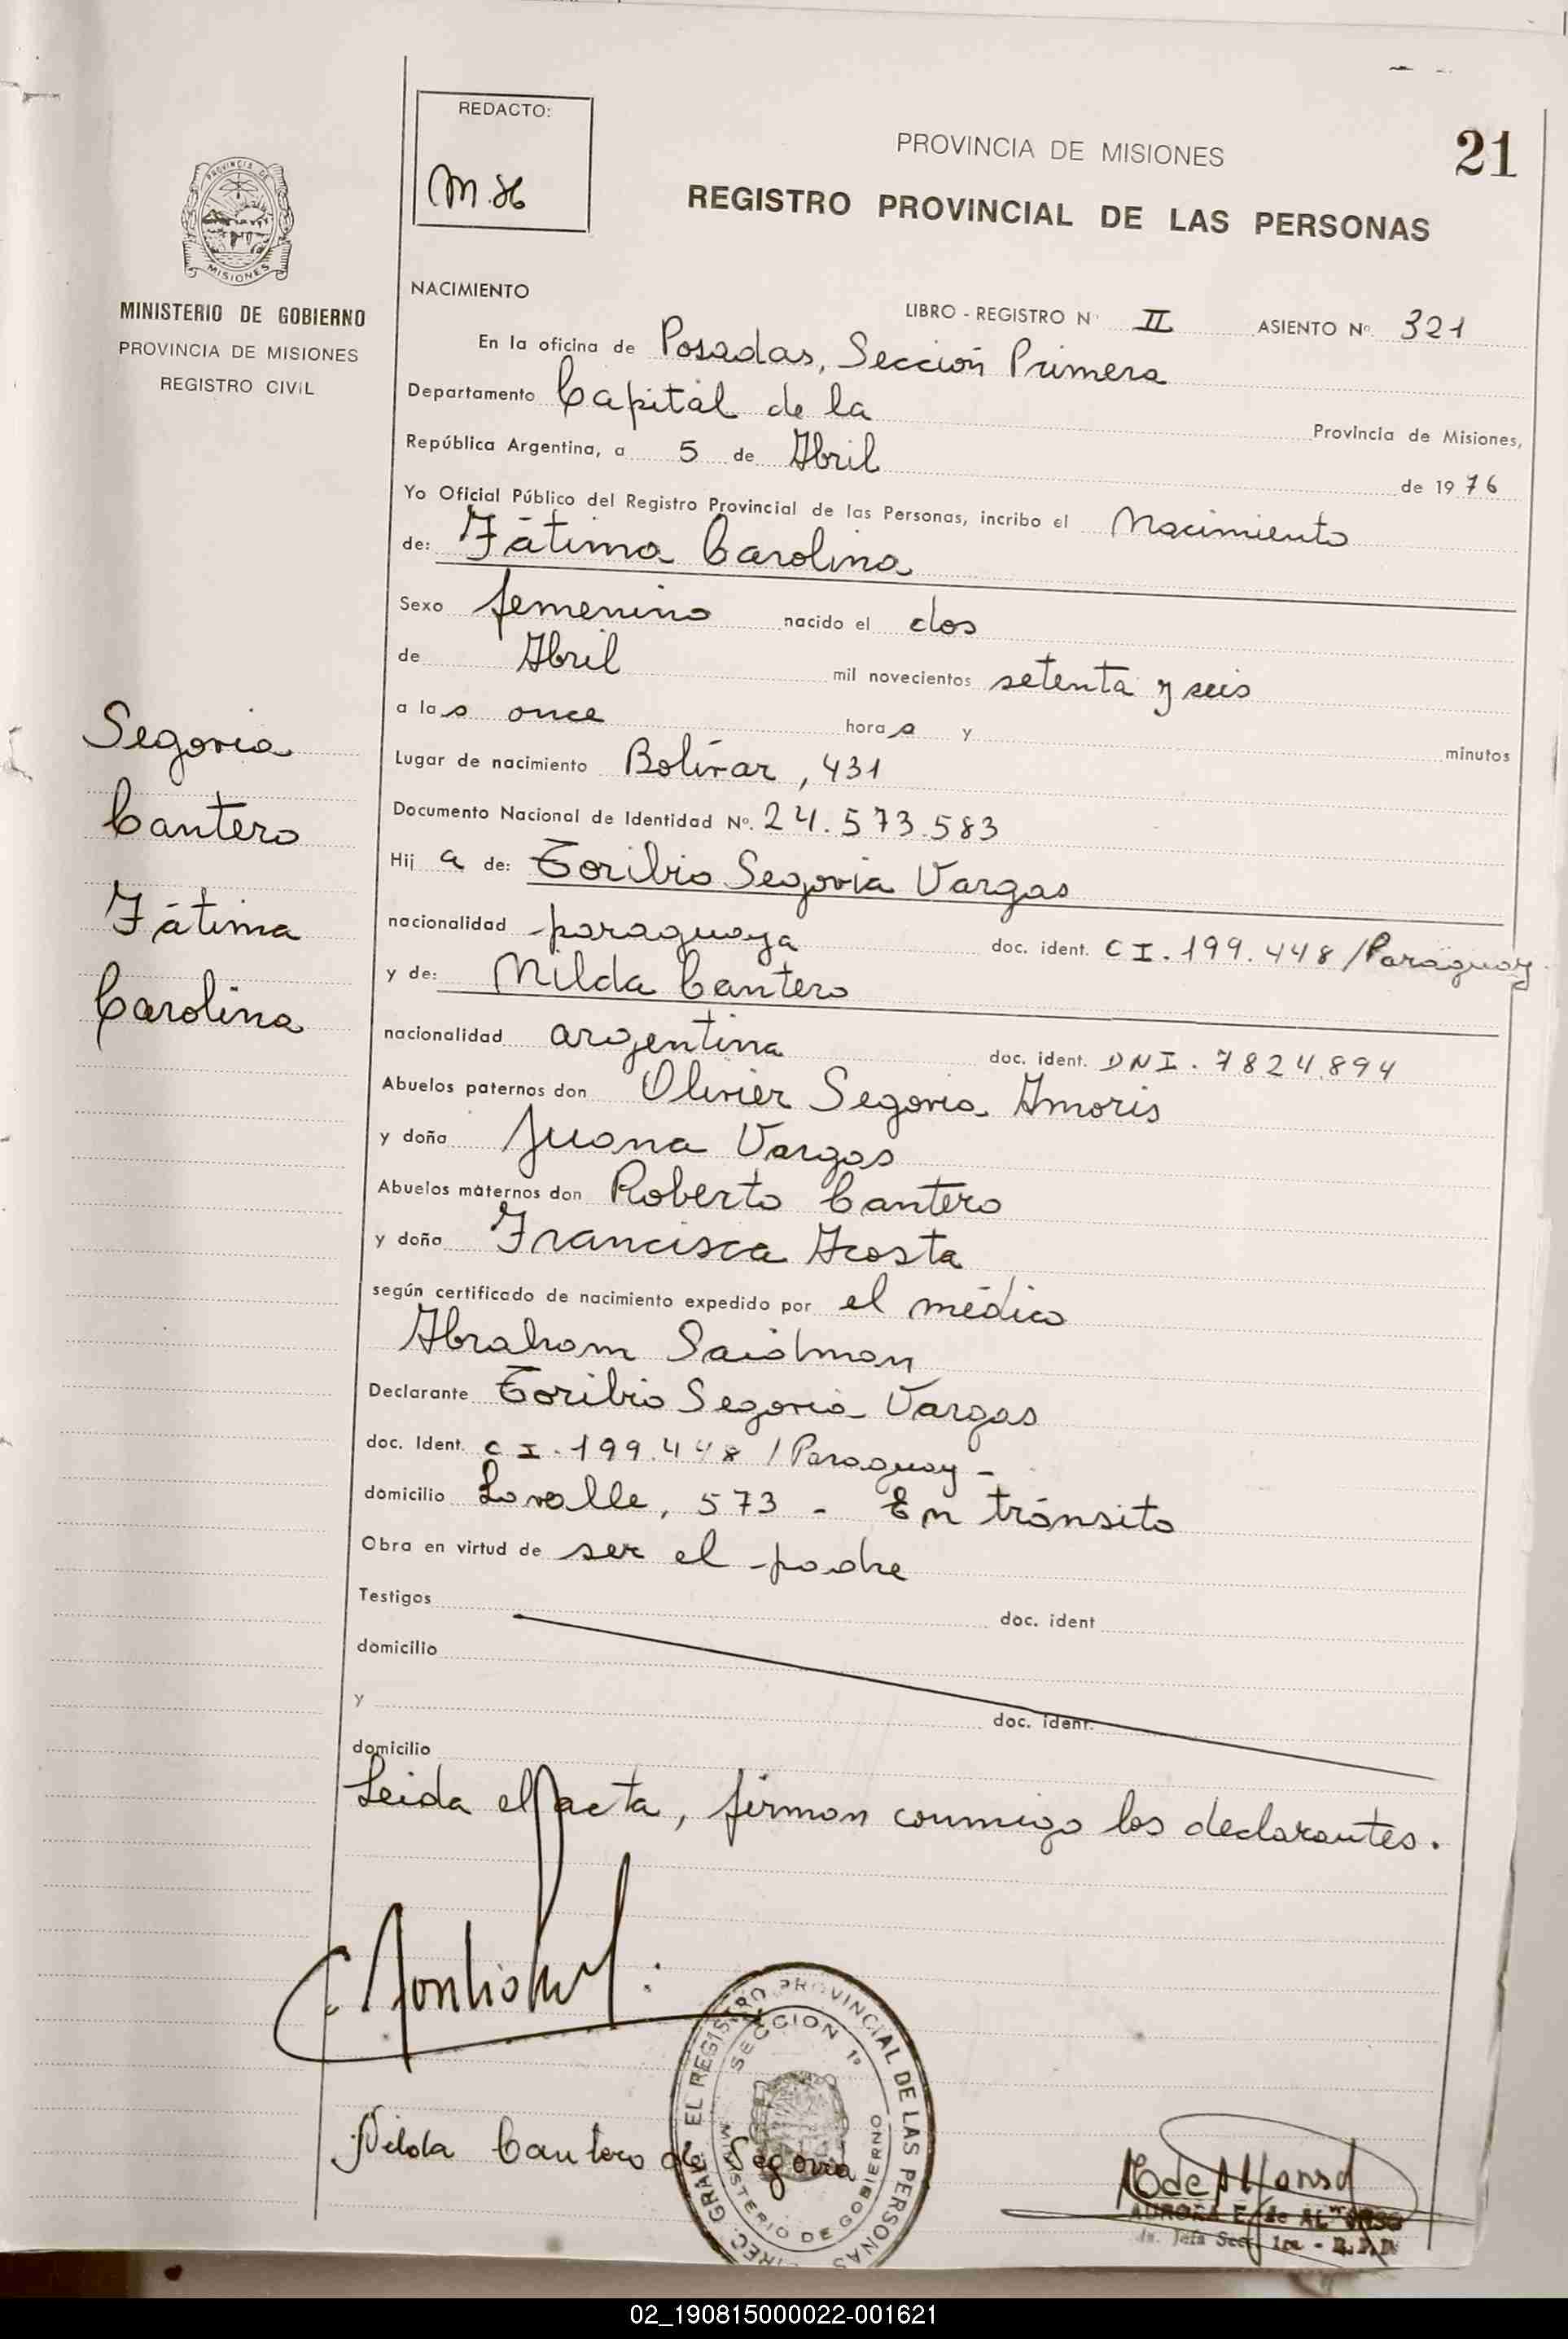 REDACTO:
PROVINCIA DE MISIONES
21
REGISTRO PROVINCIAL DE LAS PERSONAS
PROVINCIA DE
MISIONES
MINISTERIO DE GOBIERNO
PROVINCIA DE MISIONES
REGISTRO CIVIL
NACIMIENTO
LIBRO - REGISTRO Nº II ASIENTO Nº 321
En la oficina de Posadas, Sección Primera
Departamento Capital de la Provincia de Misiones,
República Argentina, a 5 de Abril de 1976
Yo Oficial Público del Registro Provincial de las Personas, incribo el Nacimiento
de: Fátima Carolina
Sexo femenino nacido el dos
de Abril mil novecientos setenta y seis
a las once horas y minutos
Lugar de nacimiento Bolívar, 431
Documento Nacional de Identidad Nº. 24.573.583
Hij a de: Toribio Segovia Vargas
nacionalidad paraguaya doc. ident. CI. 199.448/Paraguay
y de: Nilda Cantero
nacionalidad argentina doc. ident. DNI. 7824.894
Abuelos paternos don Olivier Segovia Amoris
y doña Juana Vargas
Abuelos maternos don Roberto Cantero
y doña Francisca Acosta
según certificado de nacimiento expedido por el médico
Abraham Saidman
Declarante Toribio Segovia Vargas
doc. Ident. CI. 199.448 / Paraguay -
domicilio Lavalle, 573 - En tránsito
Obra en virtud de ser el padre
Testigos doc. ident
domicilio
y doc. ident.
domicilio
Leida el acta, firman conmigo los declarantes.
Segovia
Cantero
Fátima
Carolina
DIREC. GRAL. EL REGISTRO PROVINCIAL DE LAS PERSONAS
SECCION 1º
MINISTERIO DE GOBIERNO
Nilda Cantero de Segovia
AURORA E. de ALFONSO
Jefa Secc. 1ra - R.P.P.
02_190815000022-001621